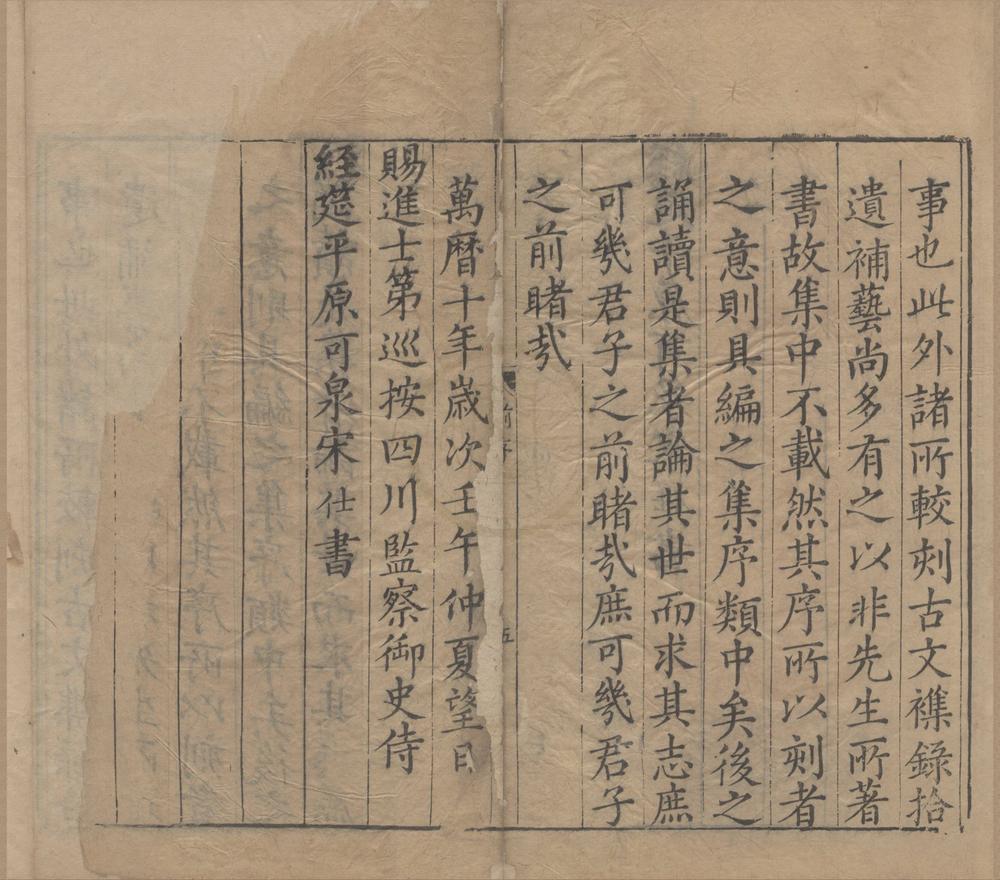 事也此外諸所較刻古文襍錄拾
遺補藝尚多有之以非先生所著
書故集中不載然其序所以刻者
之意則具編之集序類中矣後之
誦讀是集者論其世而求其志庶
可幾君子之前睹㢤庶可幾君子
之前睹㢤
前序
五
萬曆十年歲次壬午仲夏望日
賜進士第巡按四川監察御史侍
經筵平原可泉宋仕書